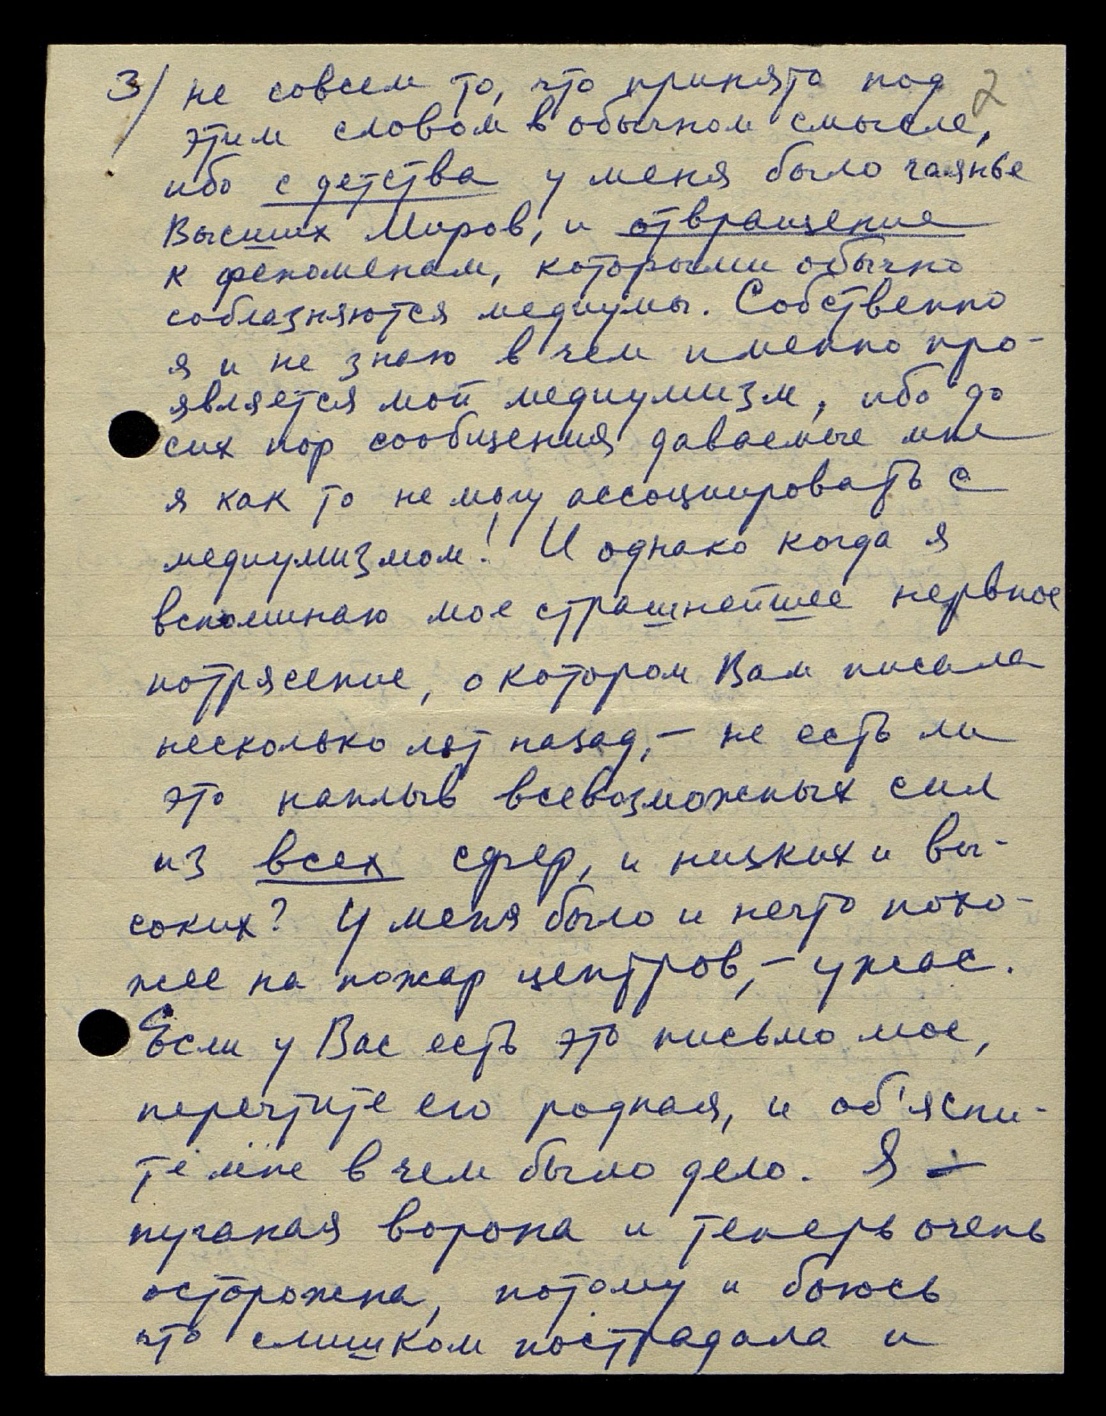 3/ не совсем то, что принято под 2
этим словом в обычном смысле,
ибо с детства у меня было чаянье
Высших Миров, и отвращение
к феноменам, которыми обычно
соблазняются медиумы. Собственно
я и не знаю в чем именно про-
является мой медиумизм, ибо до
сих пор сообщения даваемые мне
я как то не могу ассоциировать с
медиумизмом! И однако когда я
вспоминаю мое страшнейшее нервное
потрясение, о котором Вам писала
несколько лет назад, – не есть ли
это наплыв всевозможных сил
из всех сфер, и низких и вы-
соких? У меня было и нечто похо-
жее на пожар центров, – ужас.
Если у Вас есть это письмо мое,
перечтите его родная, и об'ясни-
те мне в чем было дело. Я –
пуганая ворона и теперь очень
осторожна, потому и боюсь
что слишком пострадала и